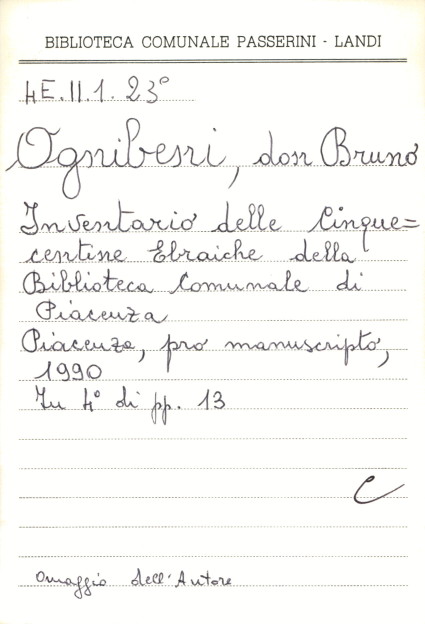 BIBLIOTECA COMUNALE PASSERINI - LANDI
4E.II.1.23°
Ognibeni, don Bruno
Inventario delle Cinque=
centine Ebraiche della
Biblioteca Comunale di
Piacenza
Piacenza, pro manuscripto,
1990
In 4° di pp. 13
C
Omaggio dell'Autore